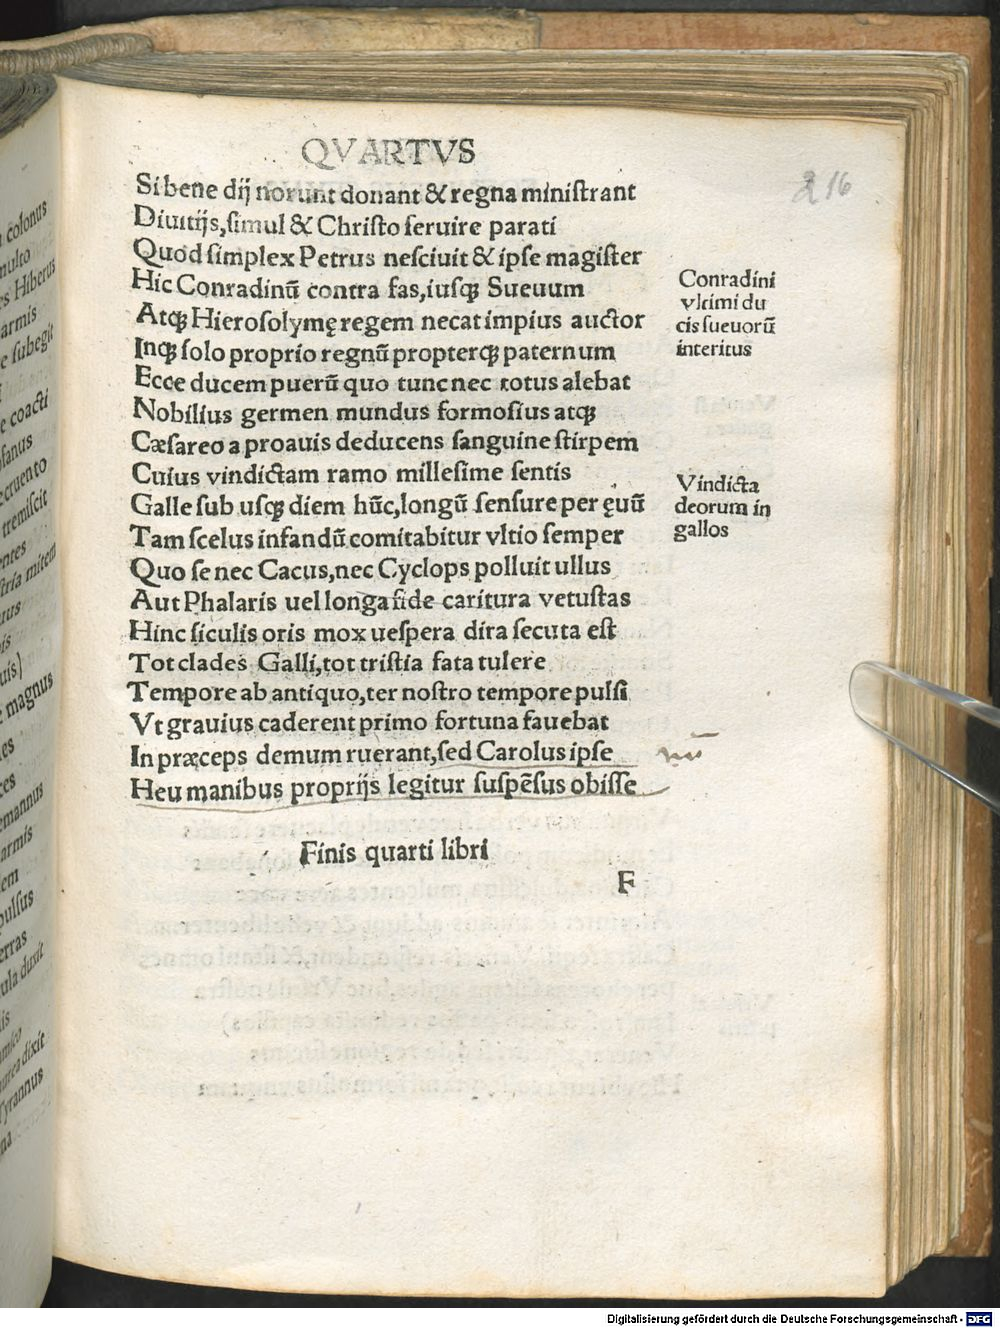 QVARTVS
216
Si bene dij norunt donant & regna ministrant
Diuitijs, simul & Christo seruire parati
Quod simplex Petrus nesciuit & ipse magister
Hic Conradinũ contra fas, iusqꝫ Sueuum
Atqꝫ Hierosolymę regem necat impius auctor
Inqꝫ solo proprio regnũ propterqꝫ paternum
Ecce ducem puerũ quo tunc nec totus alebat
Nobilius germen mundus formosius atqꝫ
Cæsareo a proauis deducens sanguine stirpem
Cuius vindictam ramo millesime sentis
Galle sub usqꝫ diem hũc, longũ sensure per ęuũ
Tam scelus infandũ comitabitur vltio semper
Quo se nec Cacus, nec Cyclops polluit ullus
Aut Phalaris uel longa fide caritura vetustas
Hinc siculis oris mox uespera dira secuta est
Tot clades Galli, tot tristia fata tulere
Tempore ab antiquo, ter nostro tempore pulsi
Vt grauius caderent primo fortuna fauebat
In præceps demum ruerant, sed Carolus ipse
Heu manibus proprijs legitur suspẽsus obisse
Finis quarti libri
F
Conradini
vltimi du
cis sueuorũ
interitus
Vindicta
deorum in
gallos
colonus
multo
Hiberus
armis
subegit
coacti
cruento
tremiscit
mitem
magnus
armis
pulsus
duxit
dixit
Tyrannus
Digitalisierung gefördert durch die Deutsche Forschungsgemeinschaft - DFG